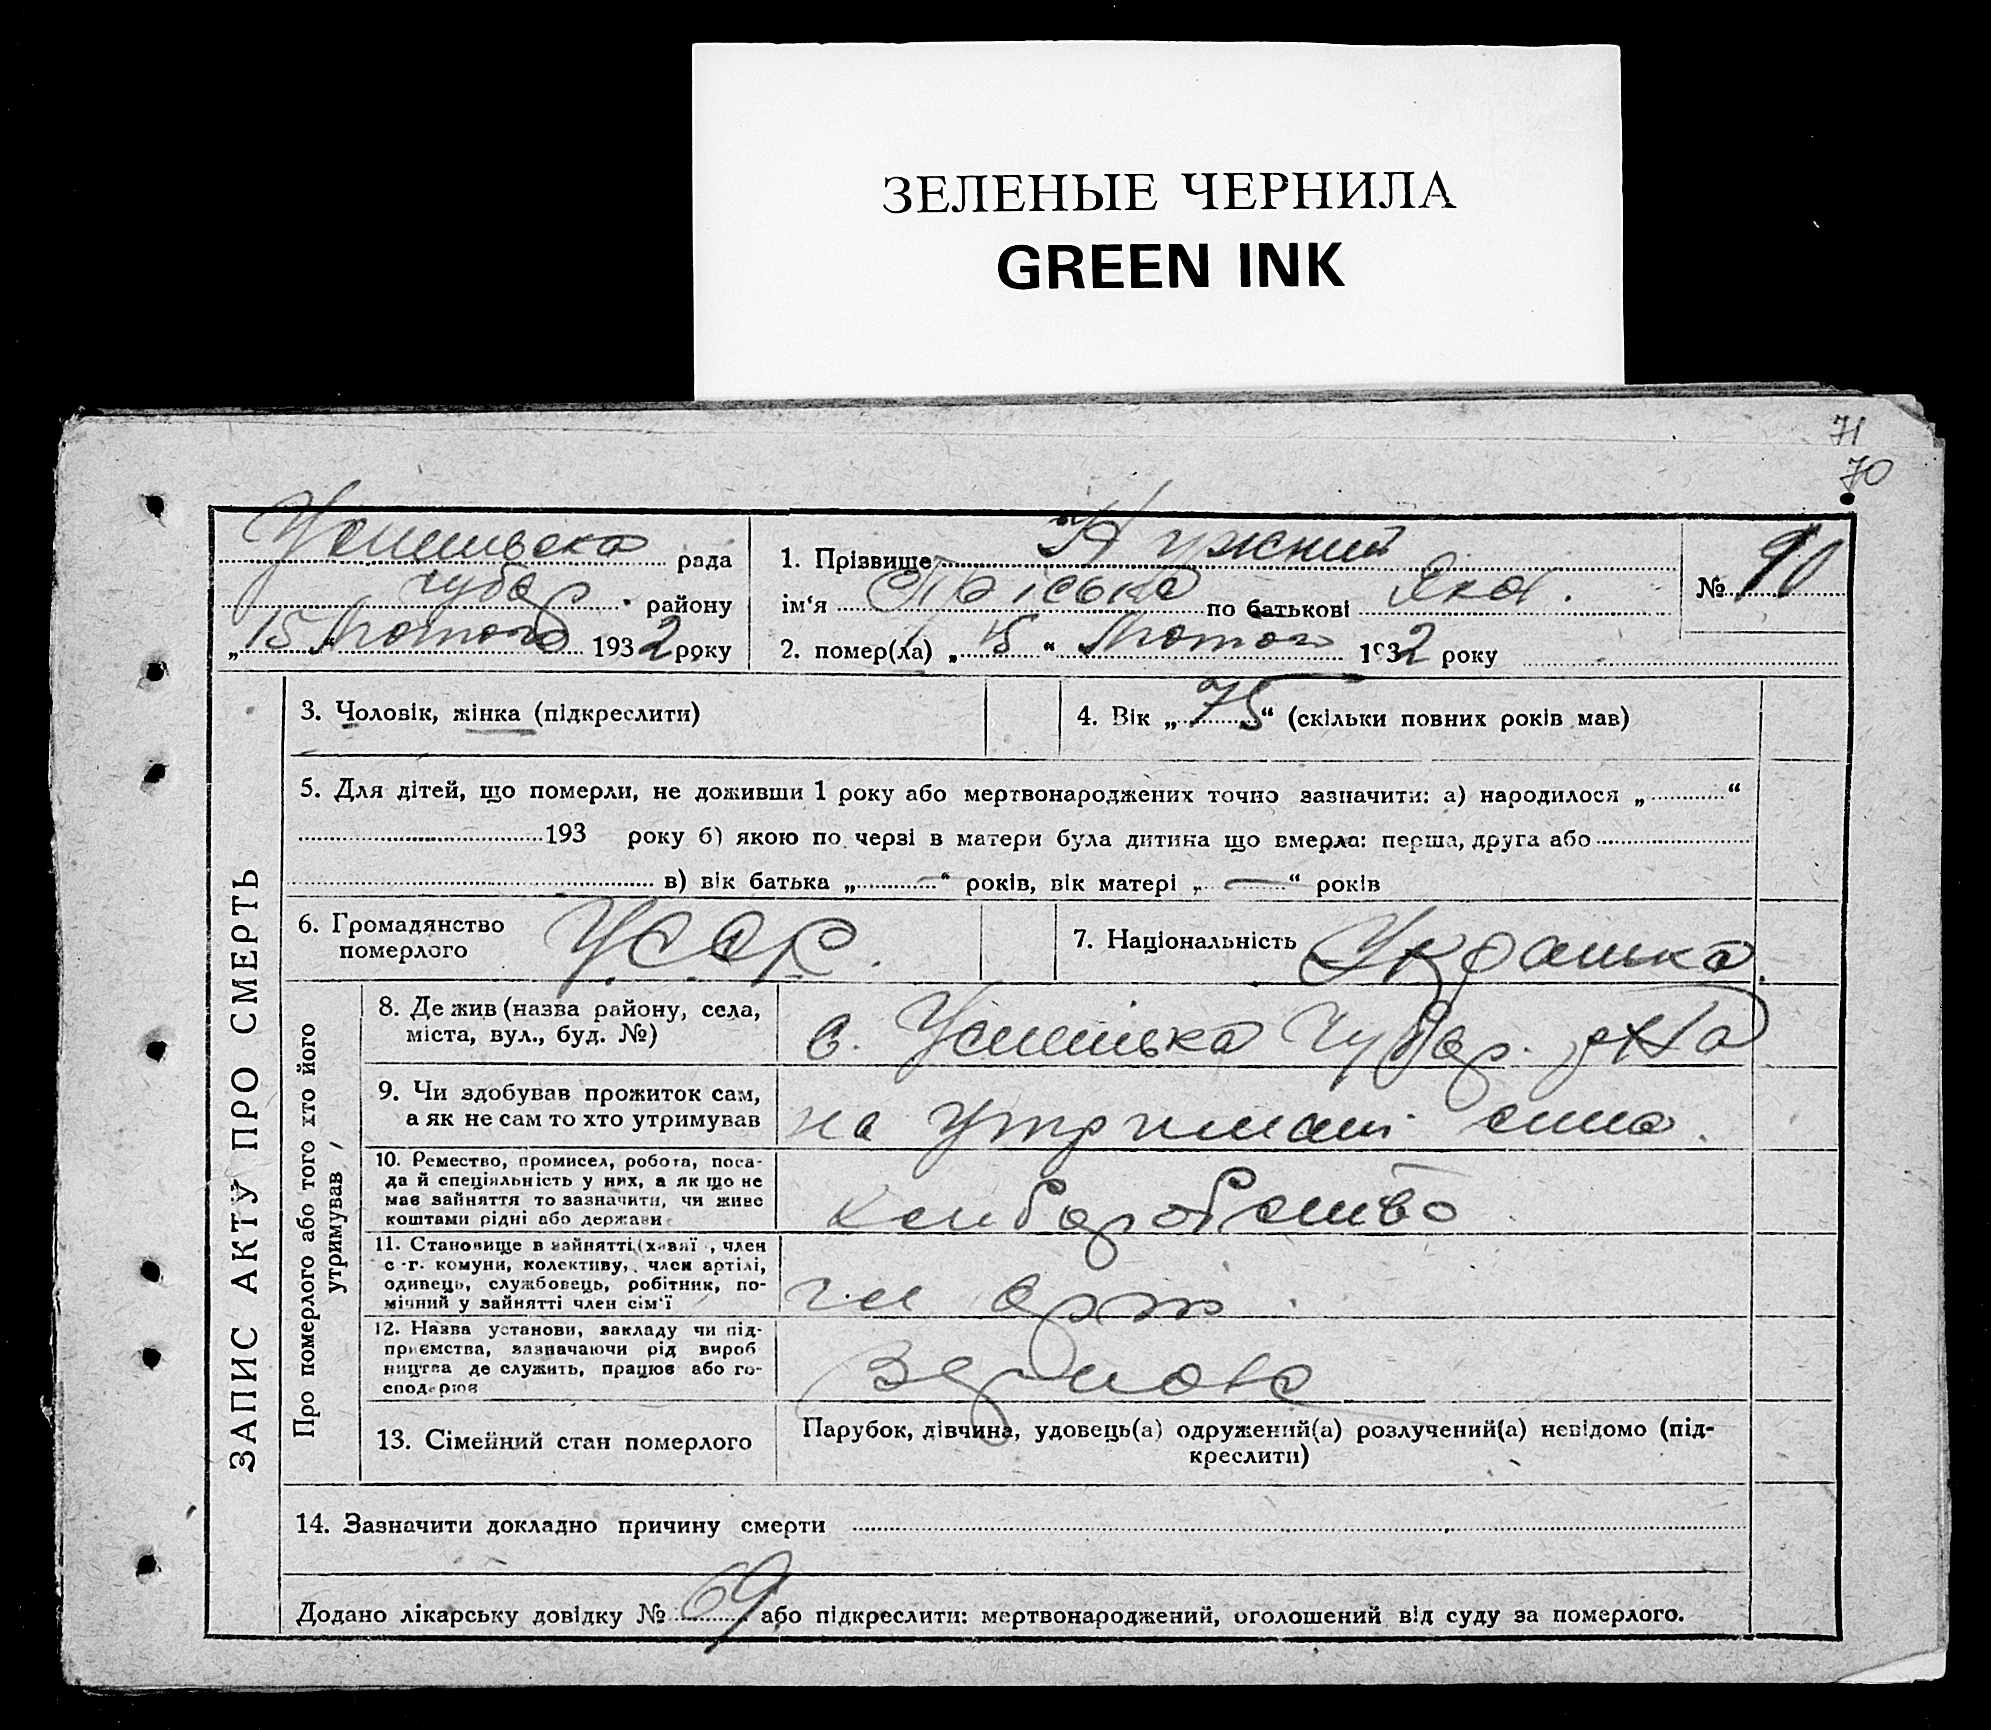 ЗЕЛЕНЫЕ ЧЕРНИЛА
GREEN INK
71
70
рада
Чубар. району
„15“ Лютого 1932 року
1. Прізвище
ім‘я по батькові Яков.
2. помер(ла) „15“ Лютого 1932 року
№ 90
ЗАПИС АКТУ ПРО СМЕРТЬ
3. Чоловік, жінка (підкреслити)
4. Вік „75“ (скільки повних років мав)
5. Для дітей, що померли, не доживши 1 року або мертвонароджених точно зазначити: а) народилося „ “
193 року б) якою по черзі в матери була дитина що вмерла: перша, друга або
в) вік батька „—“ років, вік матері „—“ років
6. Громадянство
померлого
УССР.
7. Національність Укра
Про померлого або того хто його
утримував
8. Де жив (назва району, села,
міста, вул., буд. №)
с. Чубар. р-на
9. Чи здобував прожиток сам,
а як не сам то хто утримував
на утримані сина.
10. Ремество, промисел, робота, поса-
да й спеціяльність у них, а як що не
має зайняття то зазначити, чи живе
коштами рідні або держави
хліборобство
11. Становище в зайнятті, (хазяї , член
с.-г. комуни, колективу, член артілі,
одинець, службовець, робітник, по-
мічний у зайнятті член сім‘ї
чл арт.
12. Назва установи, закладу чи під-
приємства, зазначаючи рід вироб
ництва де служить, працює або го-
сподарює
13. Сімейний стан померлого
Парубок, дівчина, удовець(а) одружений(а) розлучений(а) невідомо (під-
креслити)
14. Зазначити докладно причину смерти
Додано лікарську довідку № 69 або підкреслити: мертвонароджений, оголошений від суду за померлого.